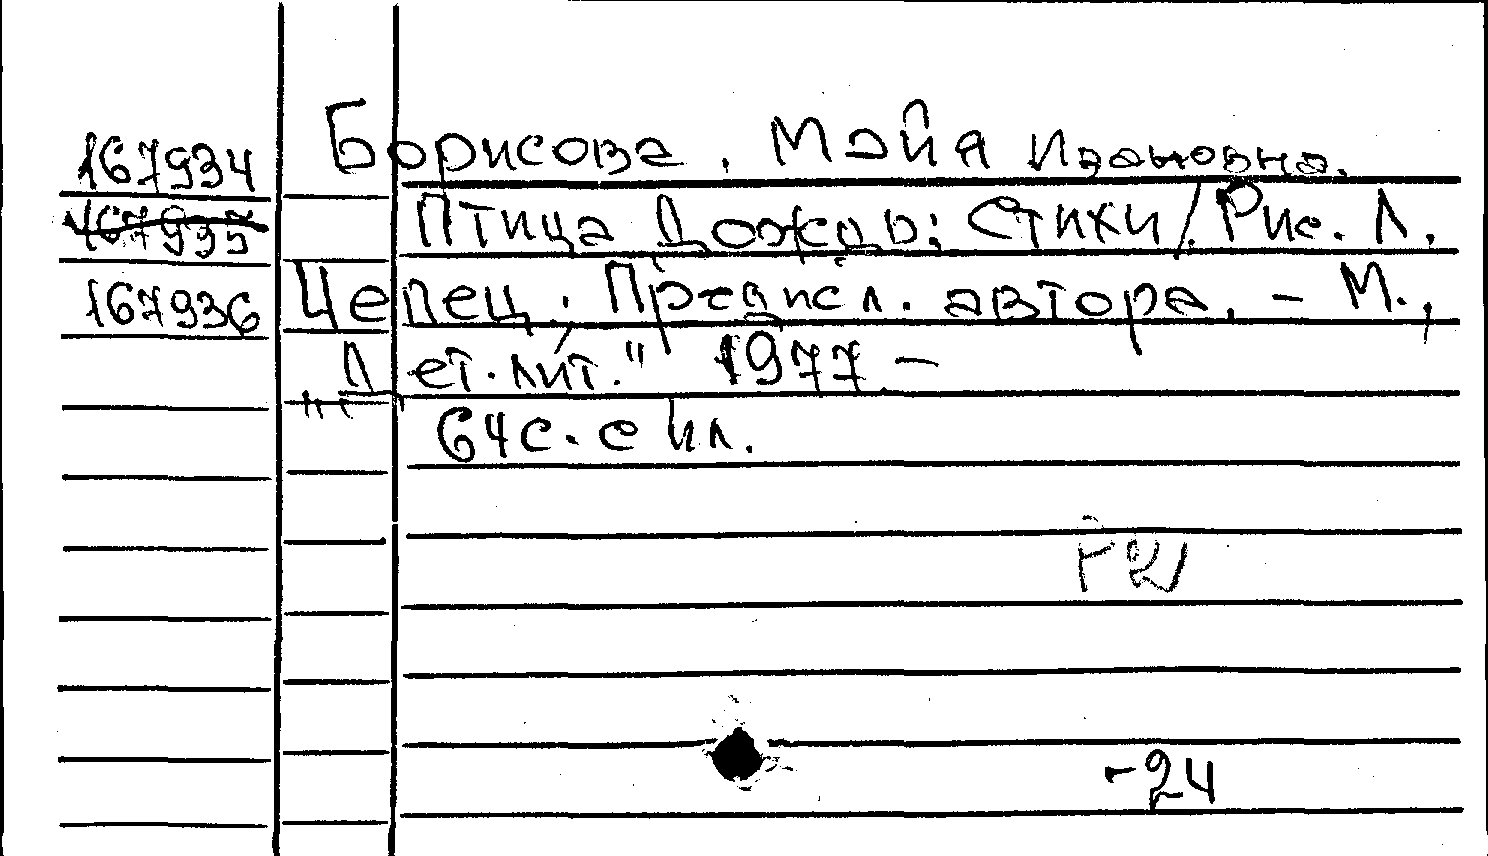 167934 Борисова, Майя Ивановна.
167935 Птица Дождь: Стихи/. Рис. Л.
167936 Чепец. Предисл. автора. – М.,
„Дет. лит." 1977 –
64 с. с ил.
-24